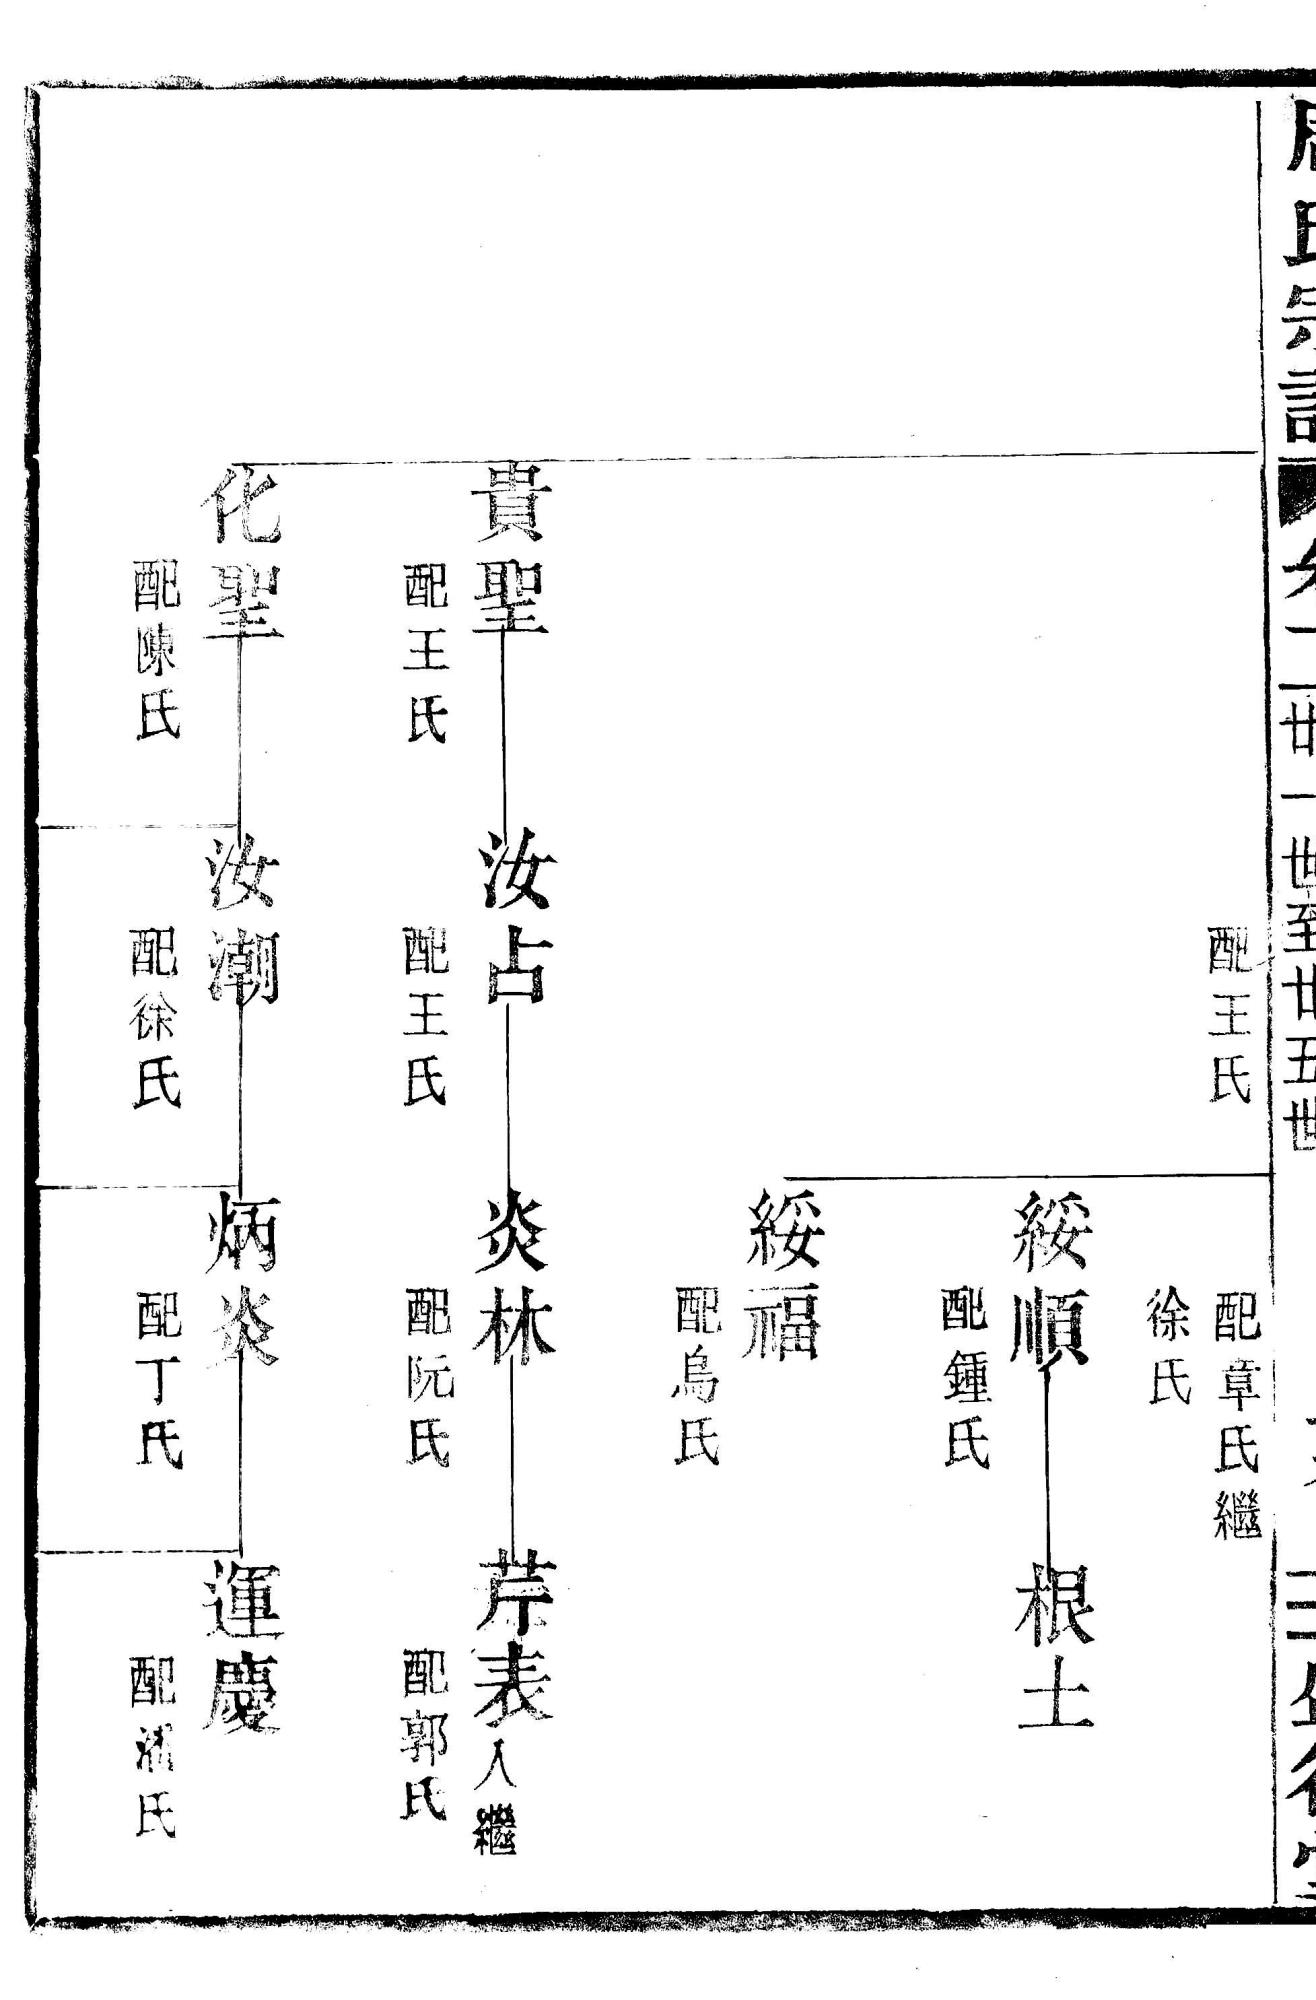 周氏宗譜
卷二
廿一世到廿五世
配王氏
配章氏繼
徐氏
綏順
配鍾氏
根土
綏福
配烏氏
貴聖
配王氏
汝占
配王氏
炎林
配阮氏
芹表入繼
配郭氏
化聖
配陳氏
汝潮
配徐氏
炳炎
配丁氏
運慶
配潘氏